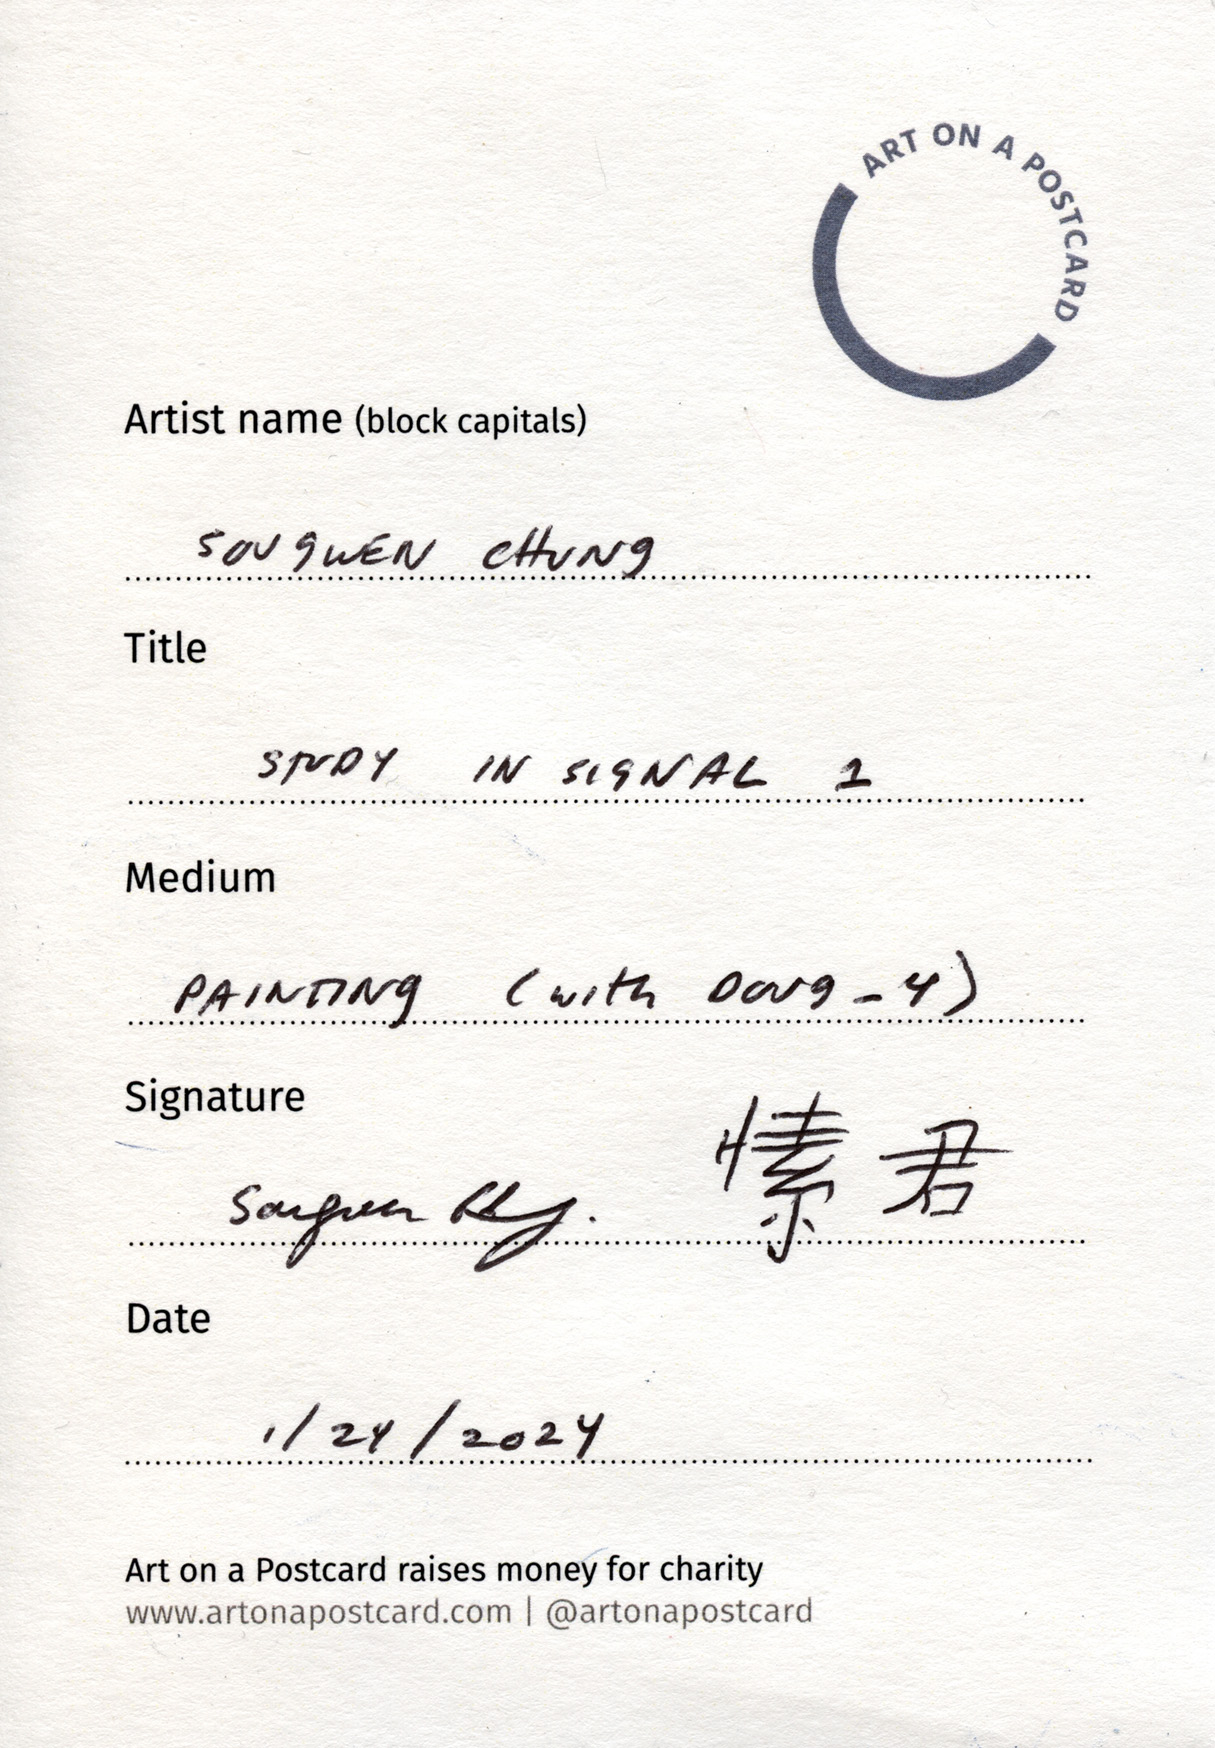 ART ON A POSTCARD
Artist name (block capitals)
SOUGWEN CHUNG
Title
STUDY IN SIGNAL 1
Medium
PAINTING (with DOUG_4)
Signature
Sougwen Chung. 愫君
Date
1/24/2024
Art on a Postcard raises money for charity
www.artonapostcard.com | @artonapostcard